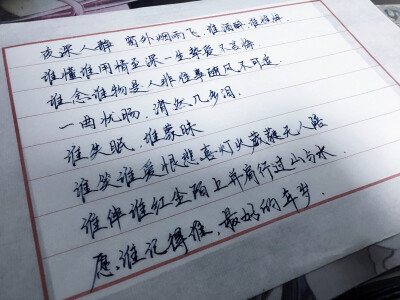 夜深人静 窗外烟雨飞，谁酒醉，谁惦
谁懂谁用情至深一生挚爱不言悔
谁念谁物是人非往事随风不可追
一曲忧肠，潸然几多泪
谁失眠，谁蒙昧
谁笑谁爱恨悲喜灯火葳蕤无人陪
谁伴谁红尘陌上并肩行过山与水
愿谁记得谁，最好的年岁